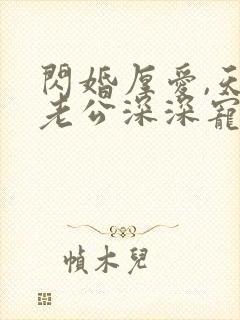 閃婚厚愛,天
老公深深寵
幀木兒